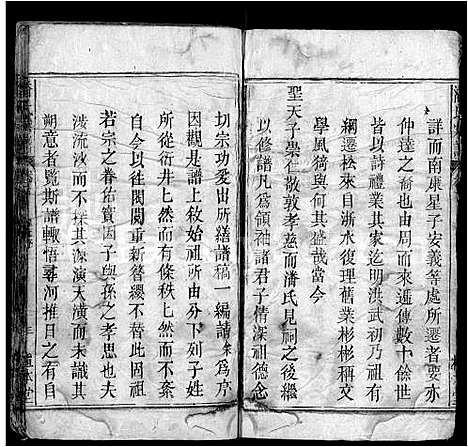 詳而南康星子安義等處所遷者要亦
仲達之裔也由周而來遞傳數十餘世
皆以詩禮業其家迄明洪武初乃祖有
綱遷松來自浙水復理舊業彬彬稱文
學風猗與何其盛哉當今
聖天子崇仁敬敦孝慈而潘氏見祠之後繼
以修譜凡為領袖諸君子情深祖德念
切宗功爰出所繕譜稿一編請余為序
因觀是譜上敘始祖所由分下列子姓
所從衍井上然而有條秩上然而不紊
自今以徃閥閱重新簪纓不替此固祖
若宗之眷佑實因子與孫之孝思也夫
涉流沙而不探其源演天潢而未識其
朔意者覽斯譜輙悟尋河推日之有自